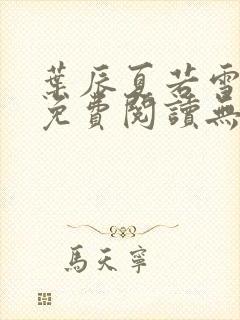 葉辰夏若雪
免費閱讀無
馬天寧